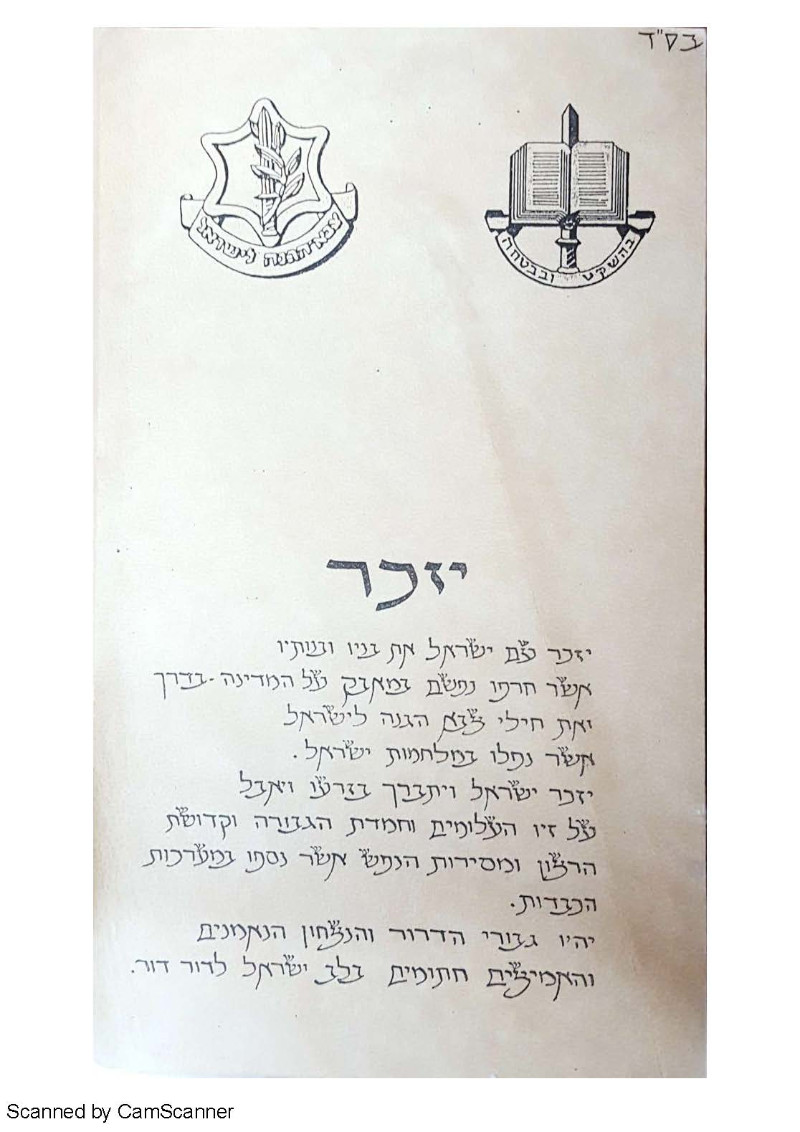 בס"ד
צבא הגנה לישראל
בהשקט ובבטחה
יזכר
יזכר עם ישראל את בניו ובנותיו
אשר חרפו נפשם במאבק על המדינה -בדרך
ואת חילי צבא הגנה לישראל
אשר נפלו במלחמות ישראל.
יזכר ישראל ויתברך בזרעו ויאבל
על זיו העלומים וחמדת הגבורה וקדושת
הרצון ומסירות הנפש אשר נספו במערכות
הכבדות.
יהיו גבורי הדרור והנצחון הנאמנים
והאמיצים חתומים בלב ישראל לדור דור.
Scanned by CamScanner